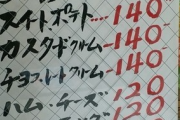 スイートポテト‥‥140
カスタードクリーム‥140
チョコレートクリーム‥140
ハム・チーズ 120
120